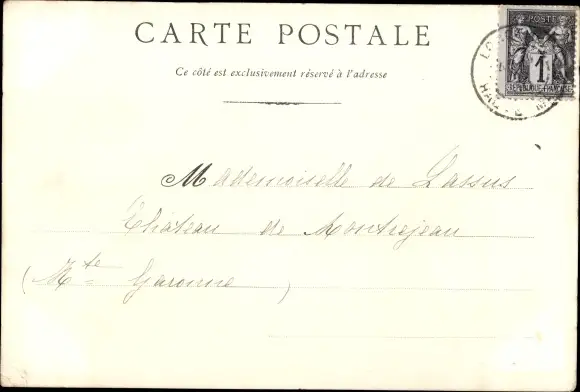 CARTE POSTALE
Ce côté est exclusivement réservé à l'adresse
POSTES
1
REPUBLIQUE FRANÇAISE
Mademoiselle de Lassus
Château de Montrejeau
(Hte Garonne)